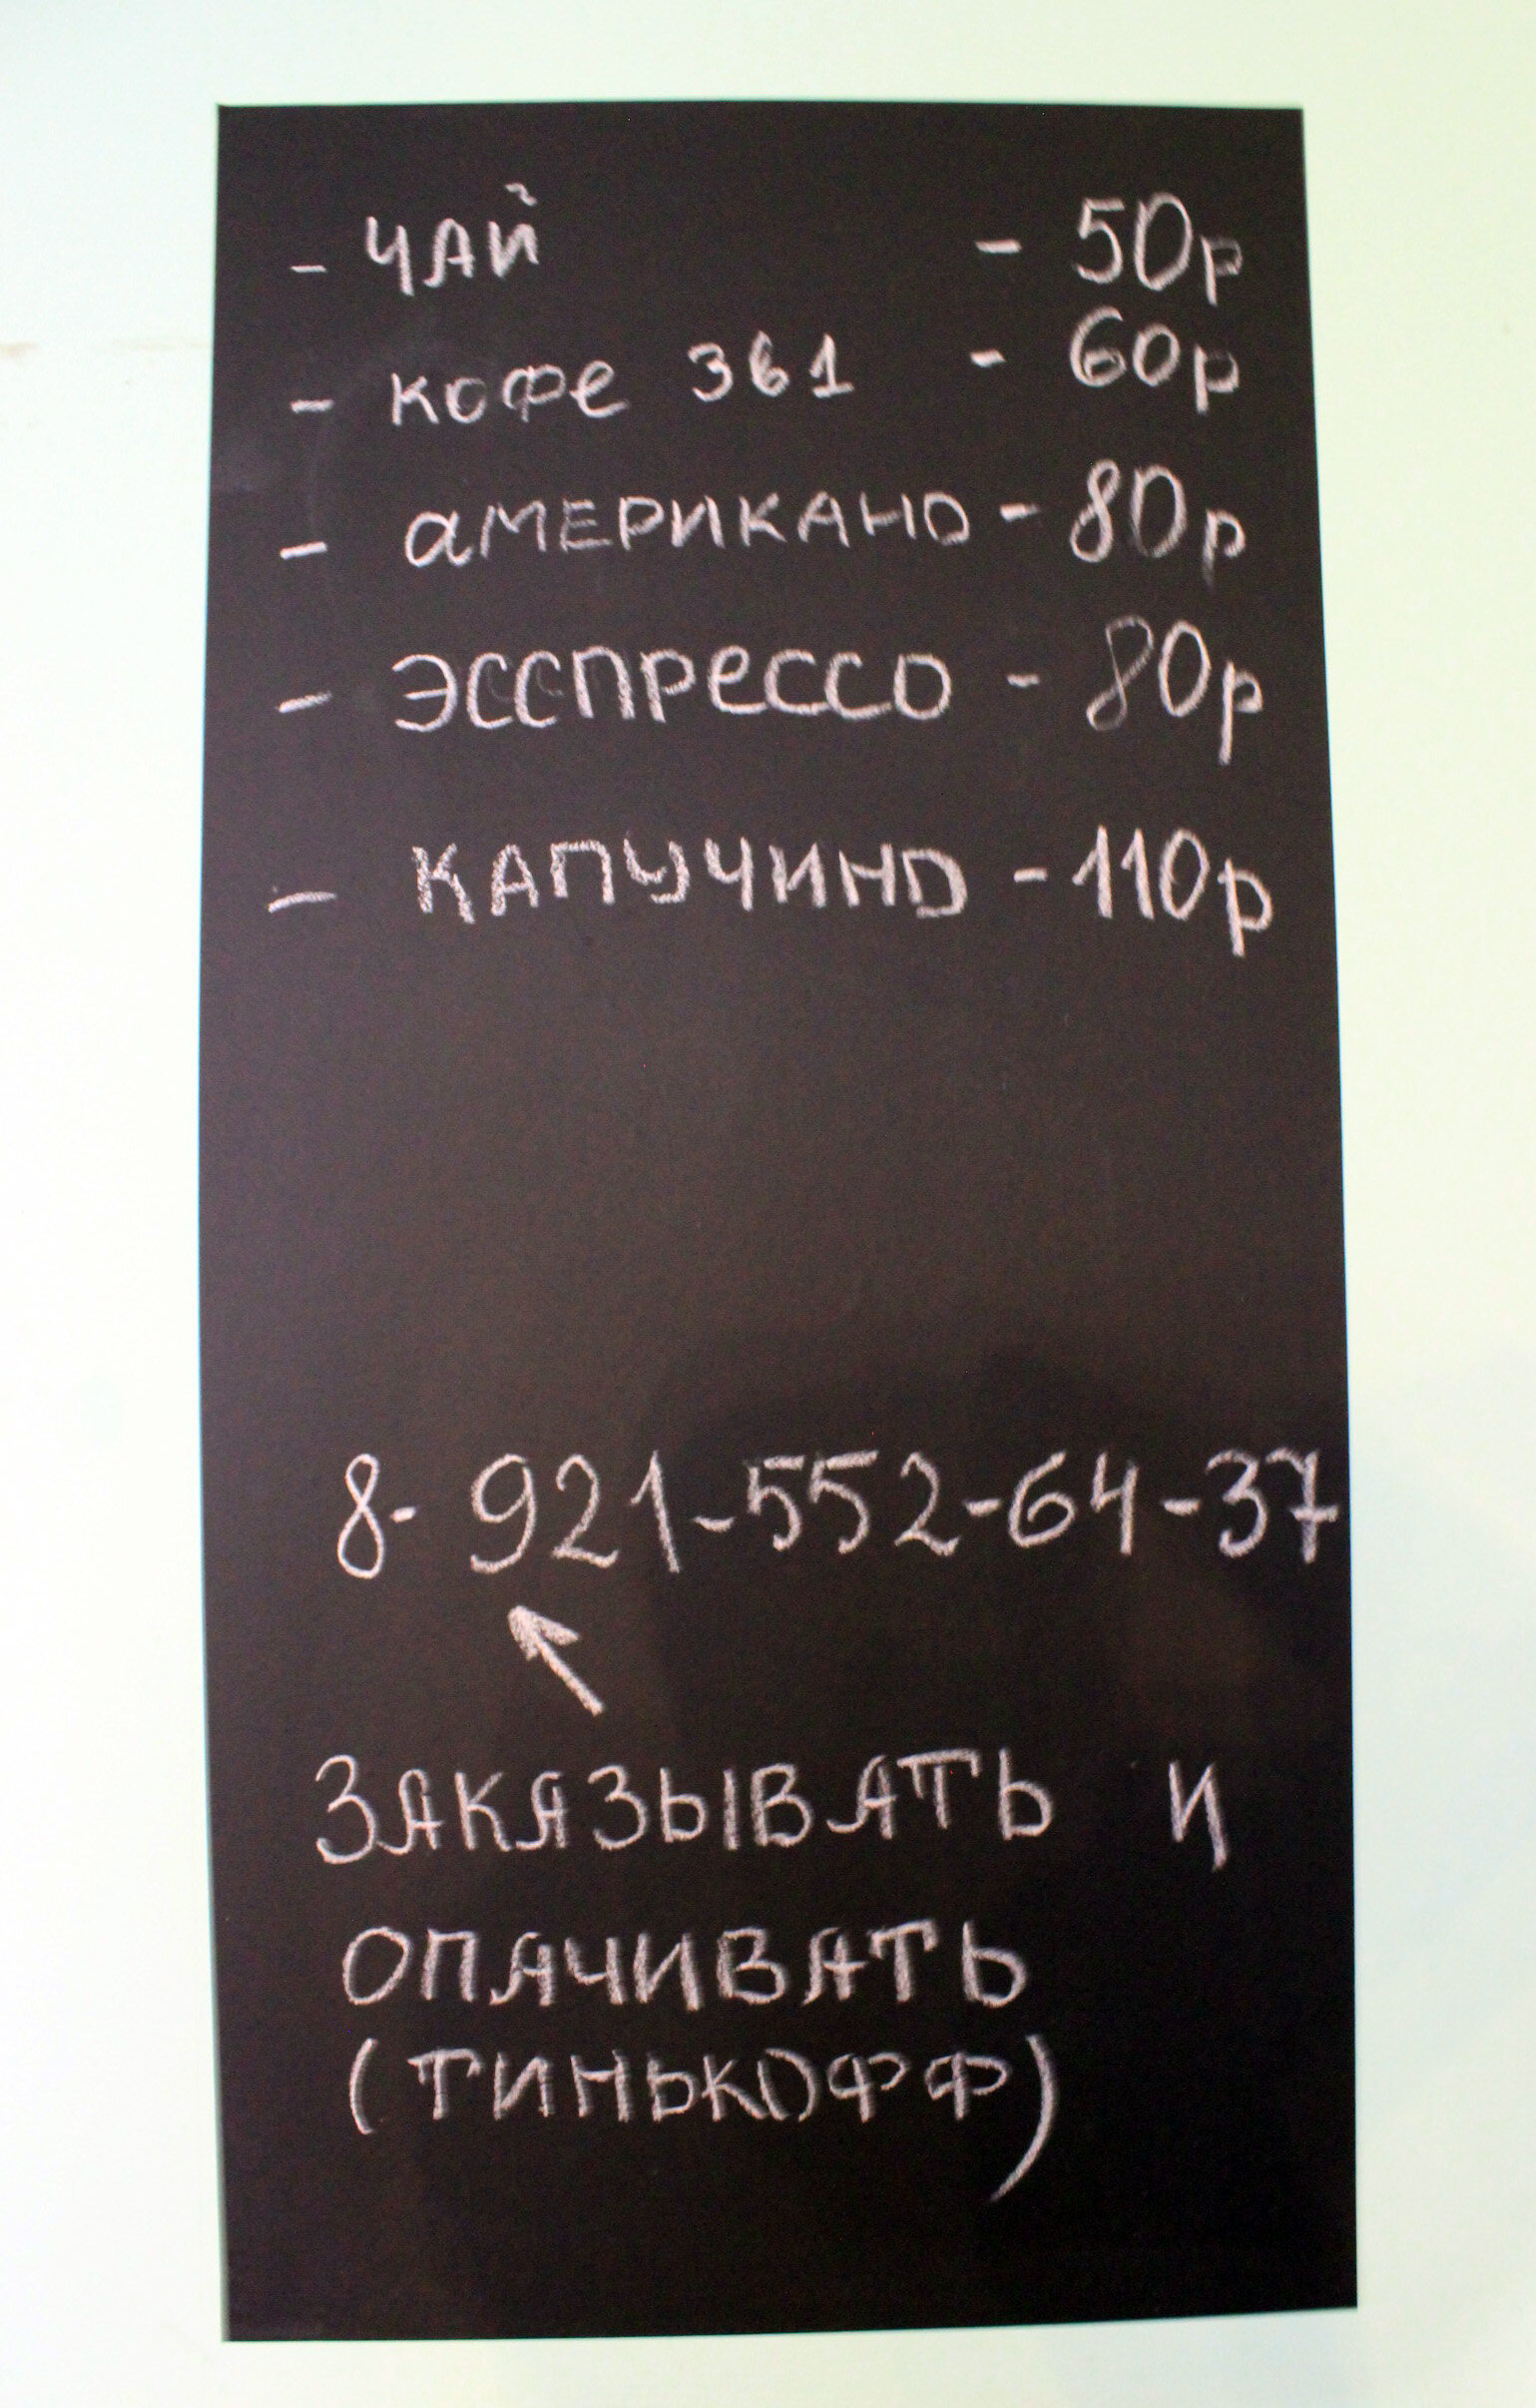 - ЧАЙ - 50р
- кофе 3в1 - 60р
- американо - 80р
- эсспрессо - 80р
- капучино - 110р
8-921-552-64-37
ЗАКАЗЫВАТЬ И
ОПАЧИВАТЬ
(ТИНЬКОФФ)